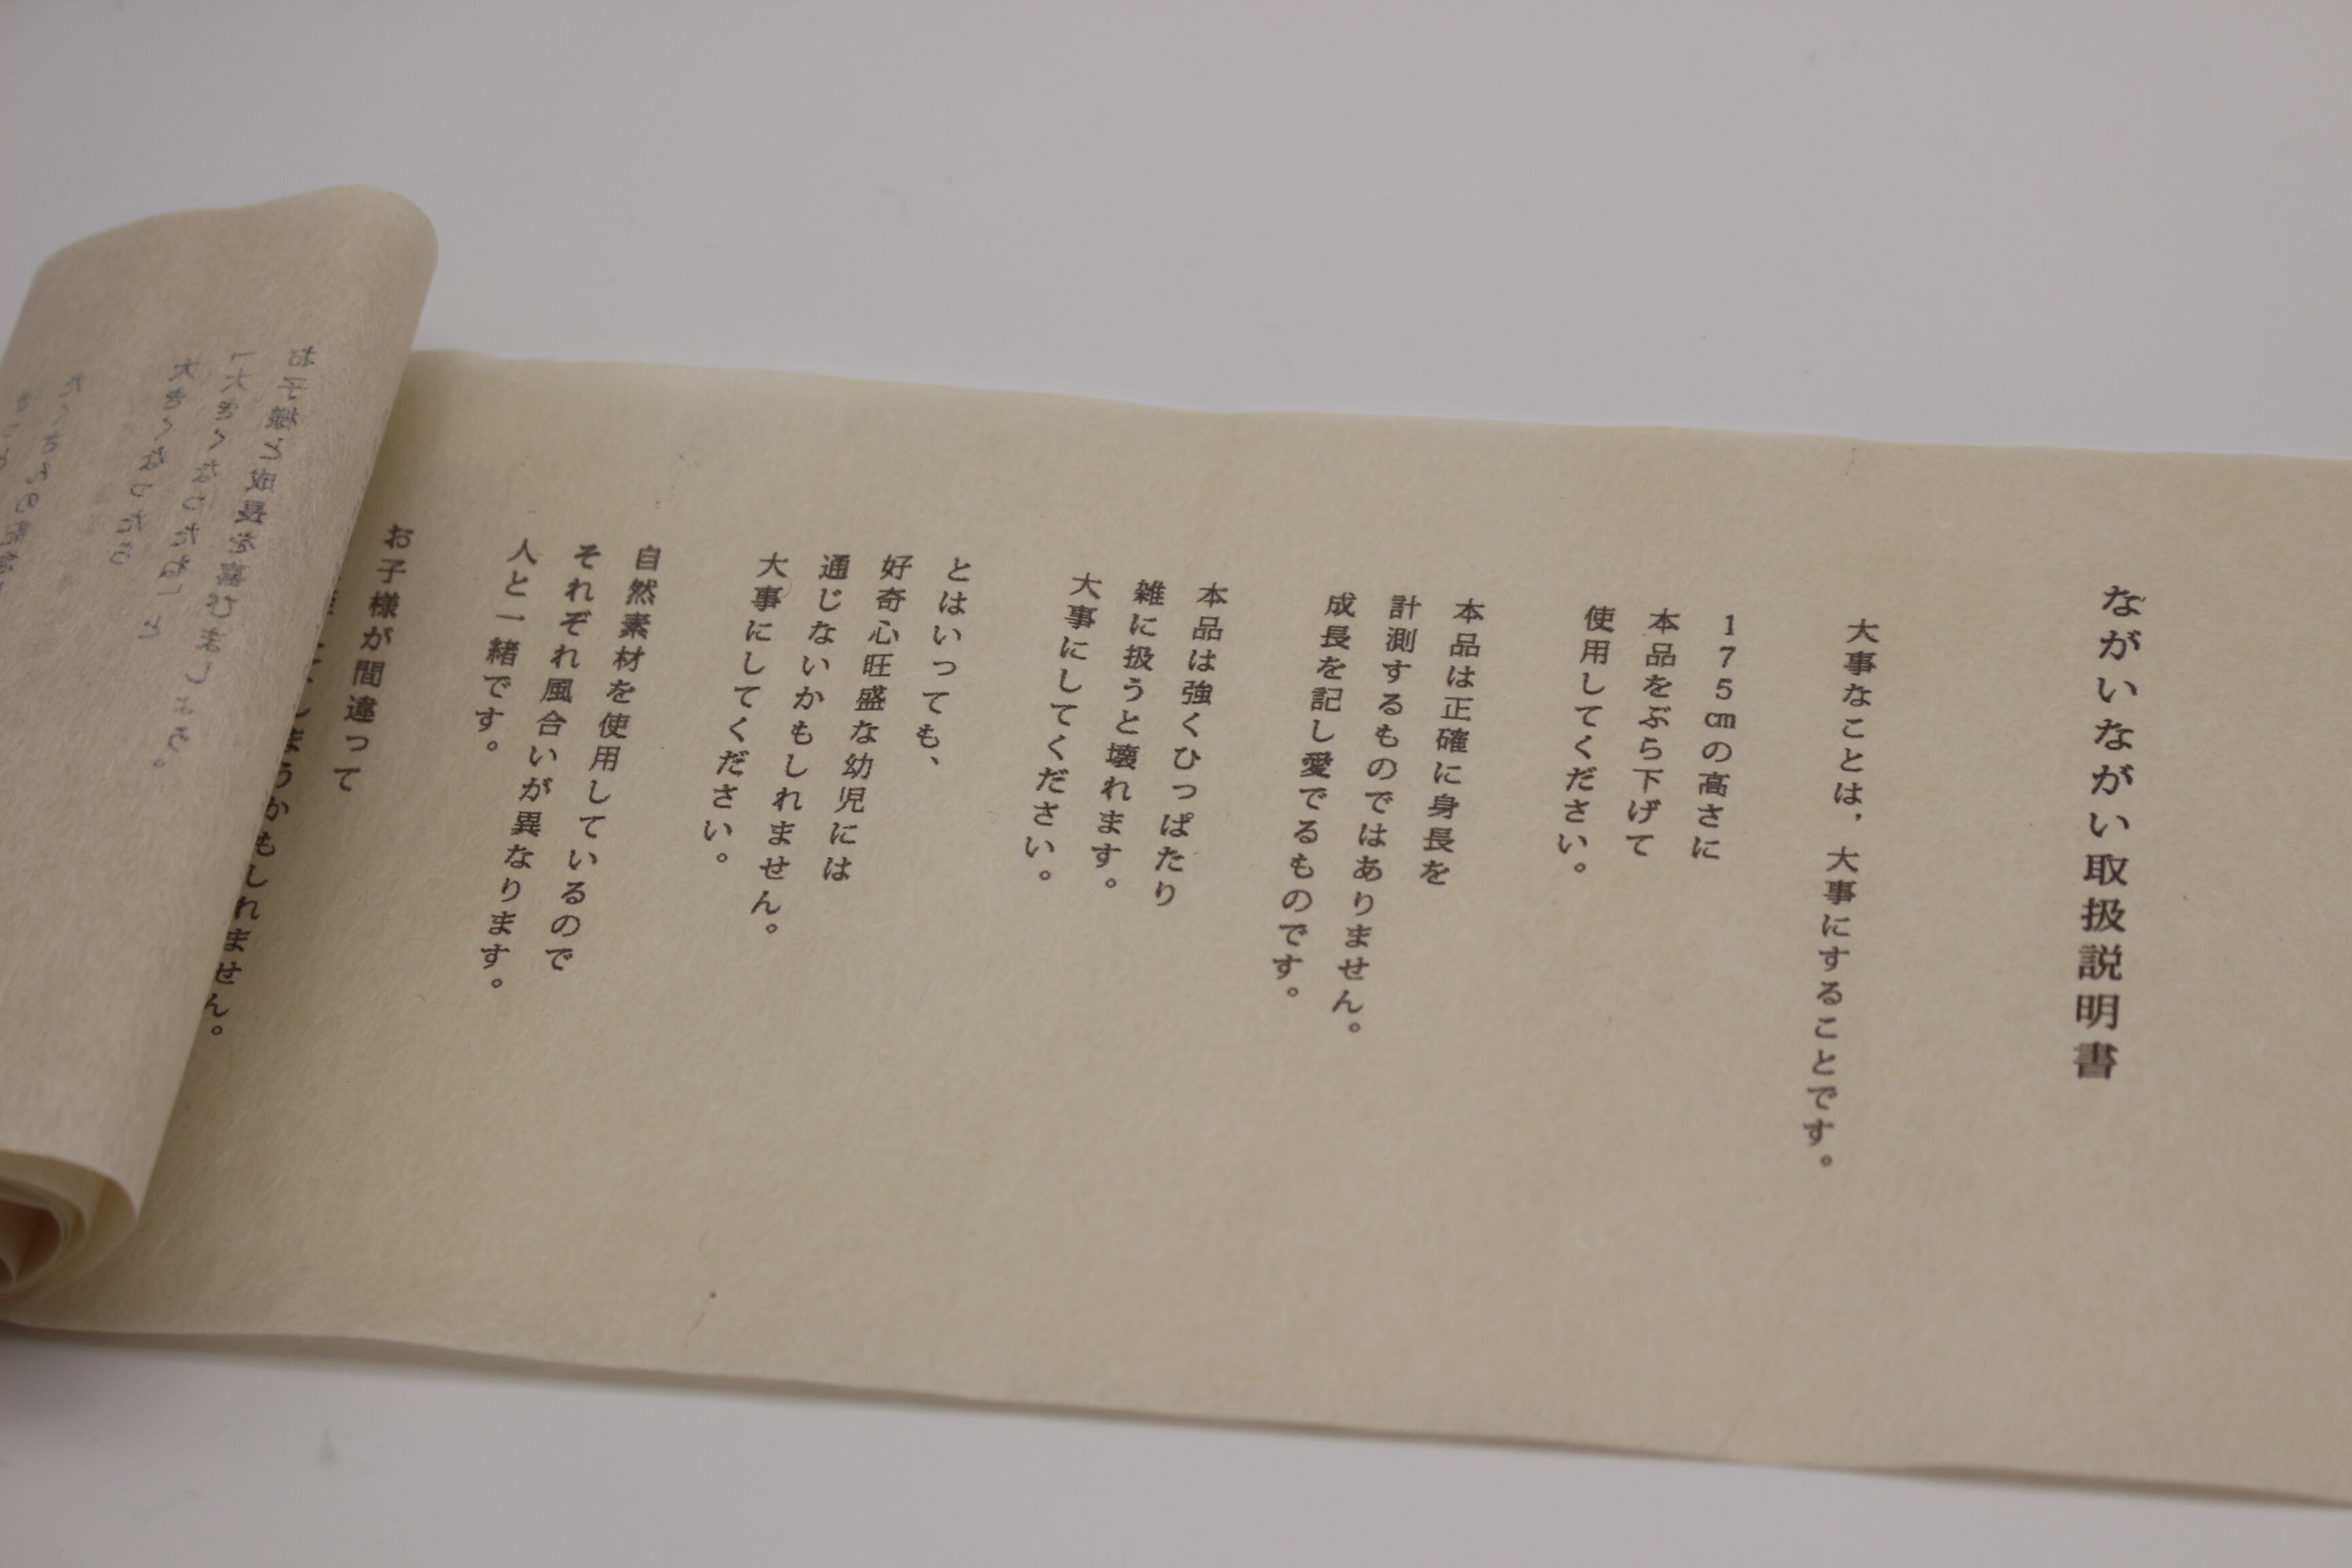 ながいながい取扱説明書
大事なことは，大事にすることです。
175㎝の高さに
本品をぶら下げて
使用してください。
本品は正確に身長を
計測するものではありません。
成長を記し愛でるものです。
本品は強くひっぱたり
雑に扱うと壊れます。
大事にしてください。
とはいっても、
好奇心旺盛な幼児には
通じないかもしれません。
大事にしてください。
自然素材を使用しているので
それぞれ風合いが異なります。
人と一緒です。
お子様が間違って
しまうかもしれません。
お子様と成長を喜びましょう。
「大きくなったね」と
大きくなったら
たくさんの